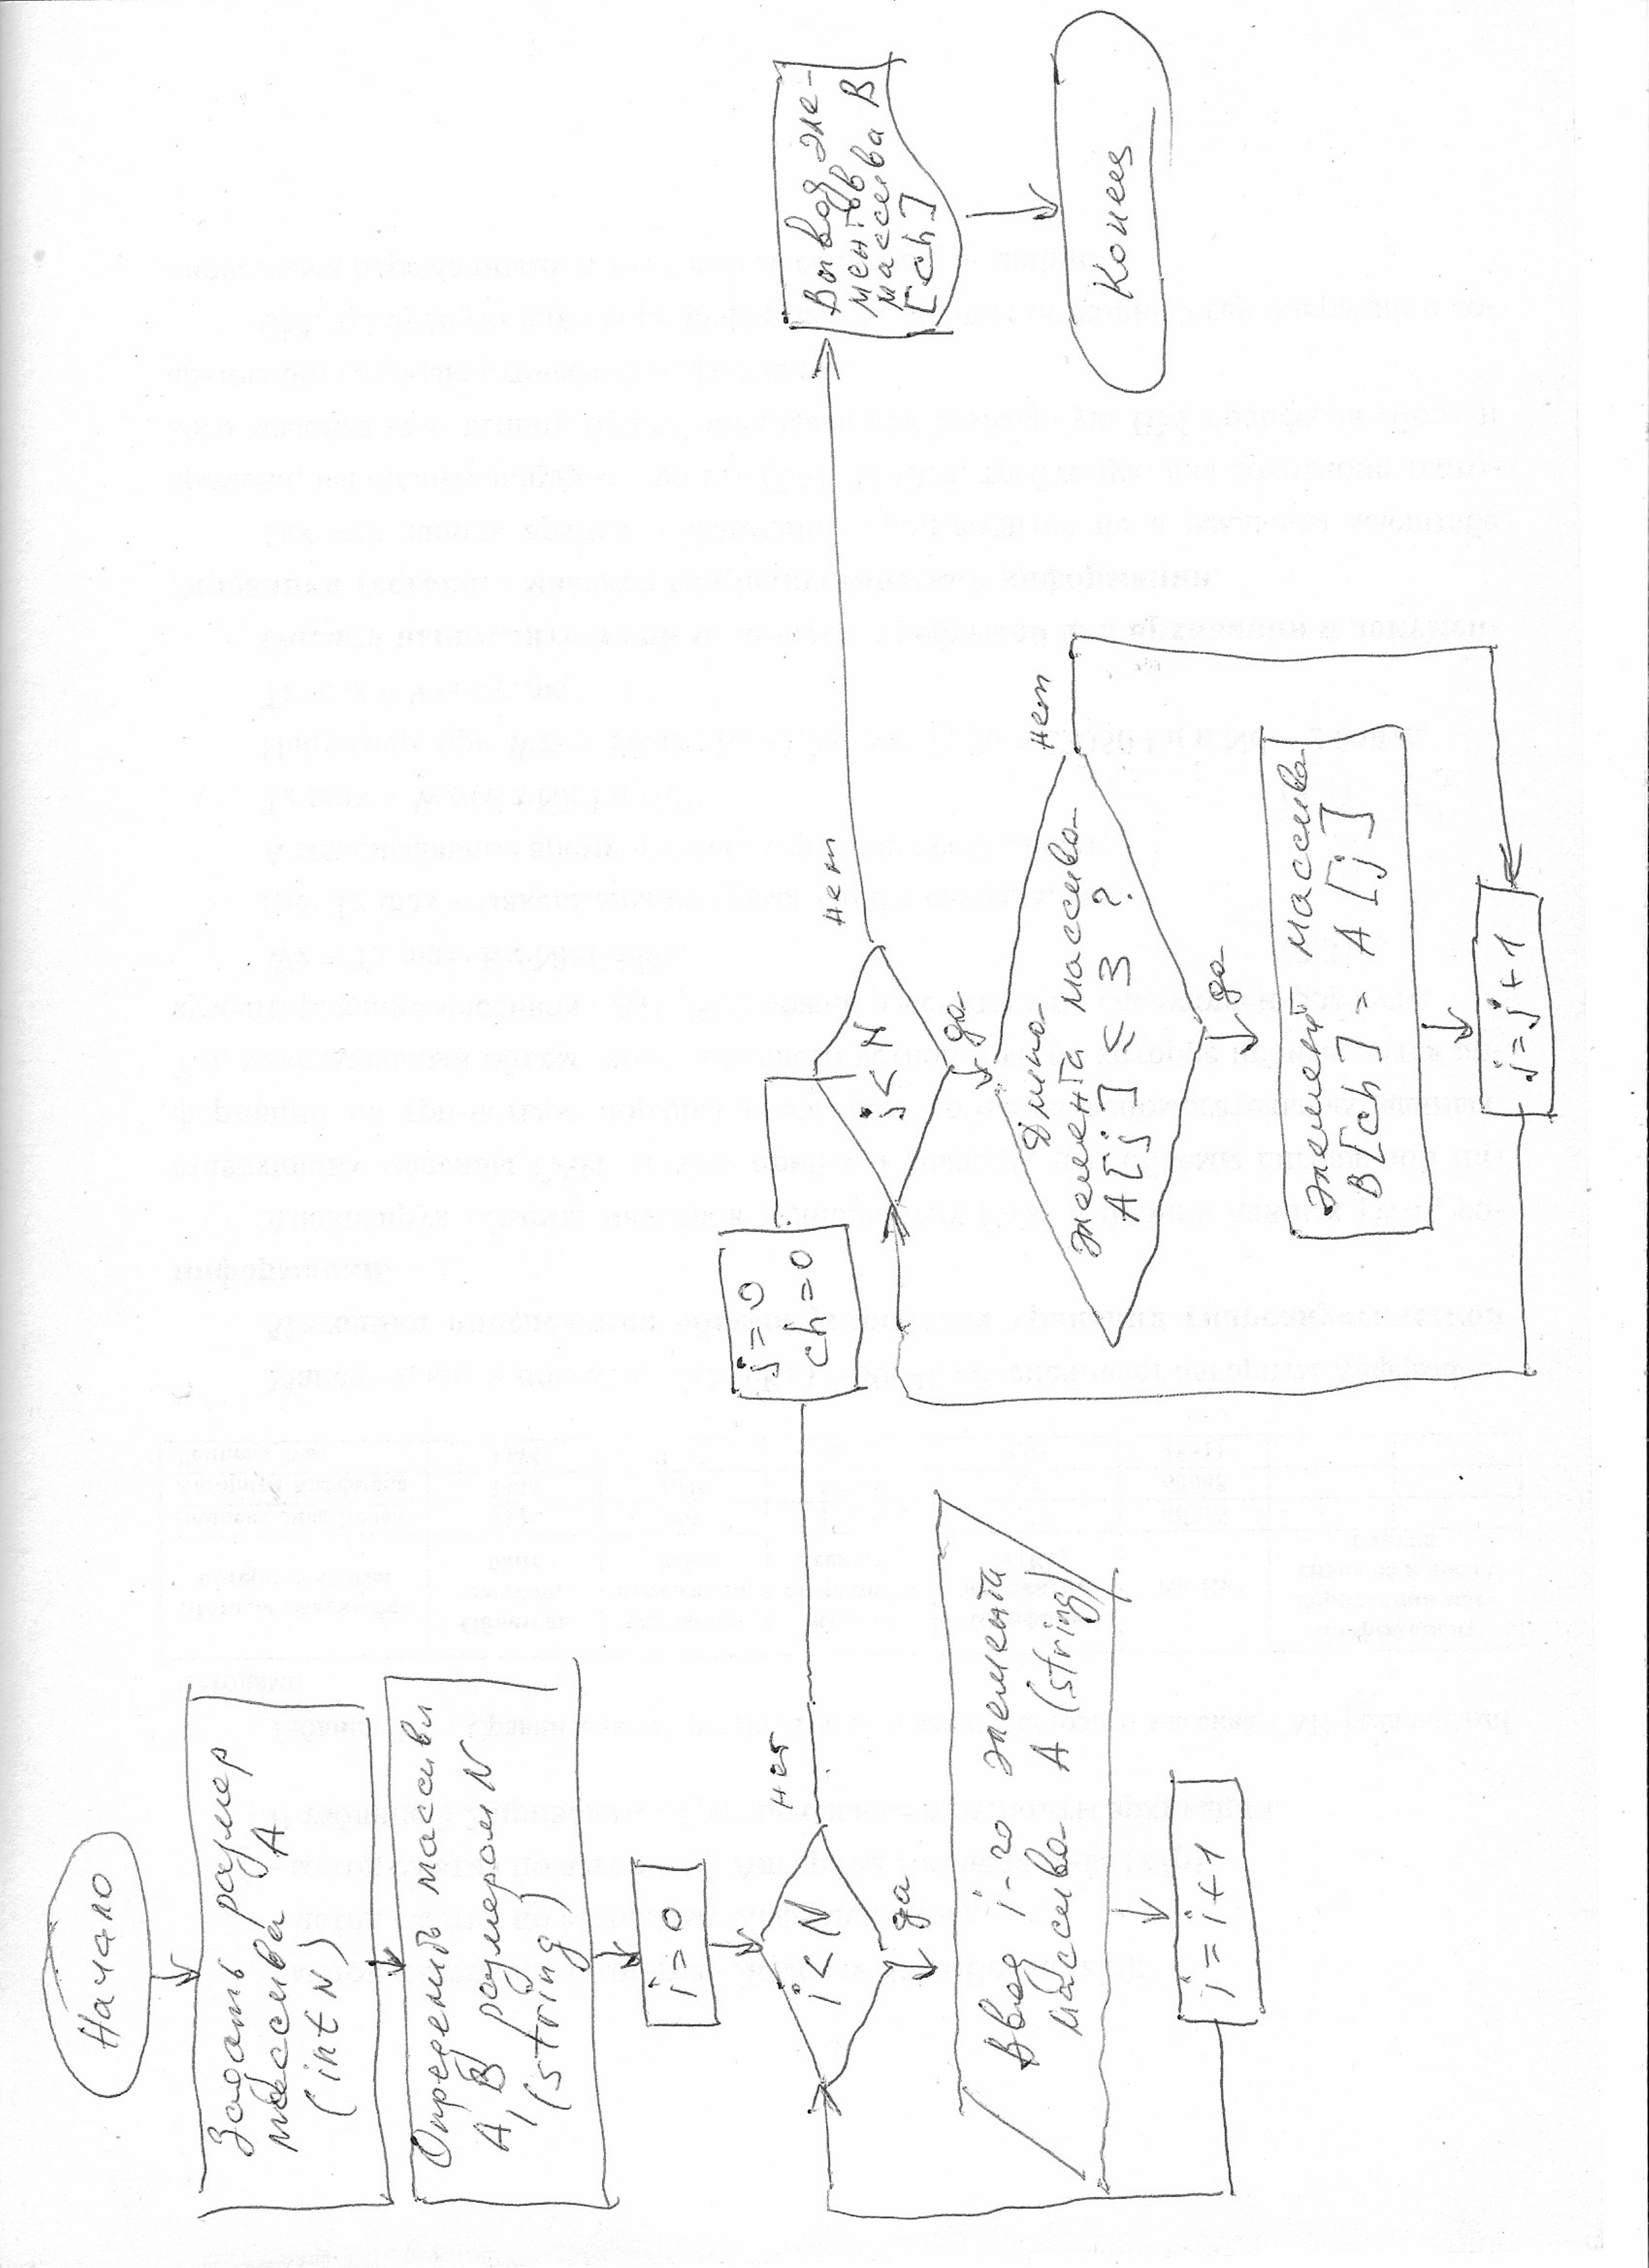 Начало
Задать размер
массива A
(int N)
Определить массивы
A, B размером N
(string)
i = 0
i < N
нет
да
Ввод i-го элемента
массива A (string)
i = i + 1
j = 0
ch = 0
j < N
нет
да
Длина
элемента массива
A [j] ≤ 3 ?
нет
да
элемент массива
B [ch] = A [j]
j = j + 1
Вывод эле-
ментов
массива B
[ch]
Конец